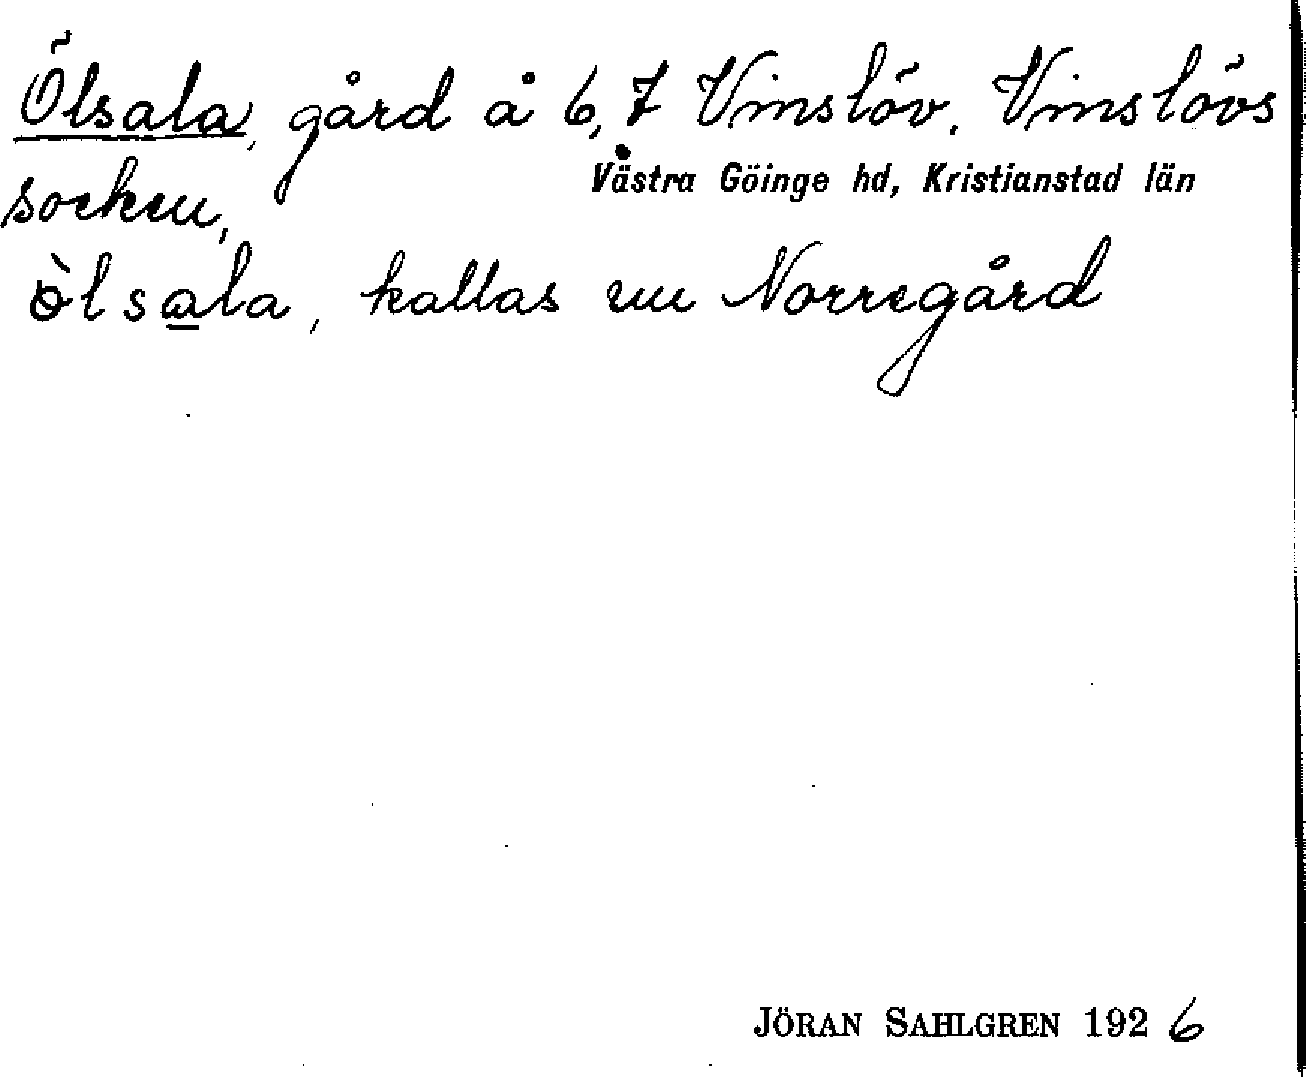 Ölsala, gård å 6,7 Vinslöv. Vinslövs
Västra Göinge hd, Kristianstad län
socken,
òlsala, kallas nu Norregård
JÖRAN SAHLGREN 1926